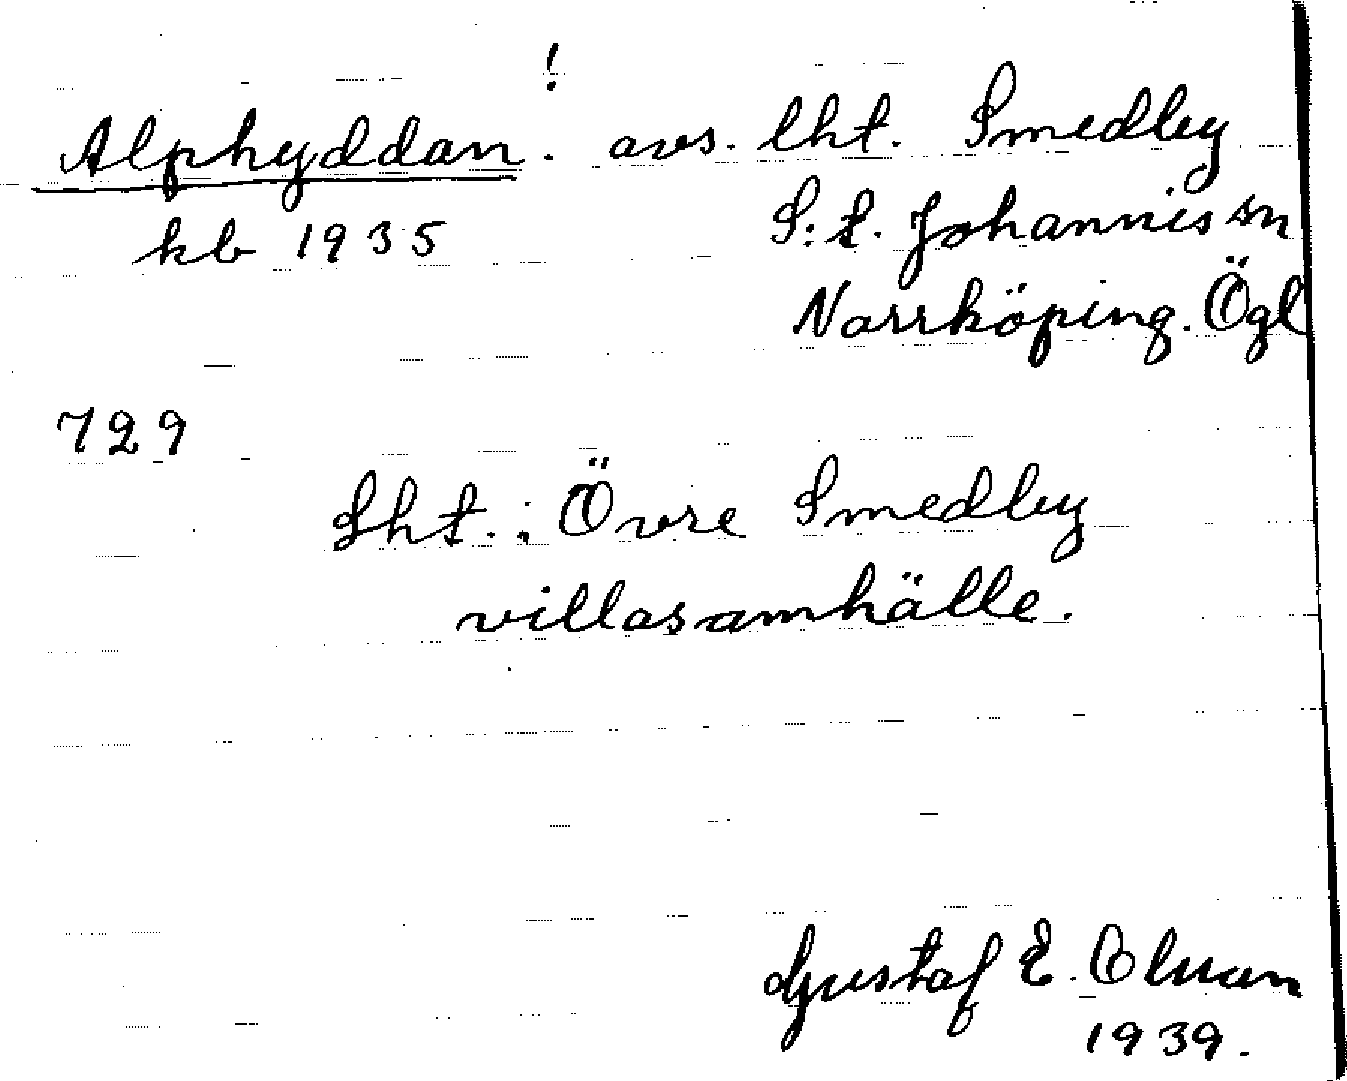 !
Alphyddan. avs. lht. Smedby
kb 1935 S:t. Johannis sn
Norrköping. Ögl
729
Lht. : Övre Smedby
villasamhälle.
Gustaf E.
1939.